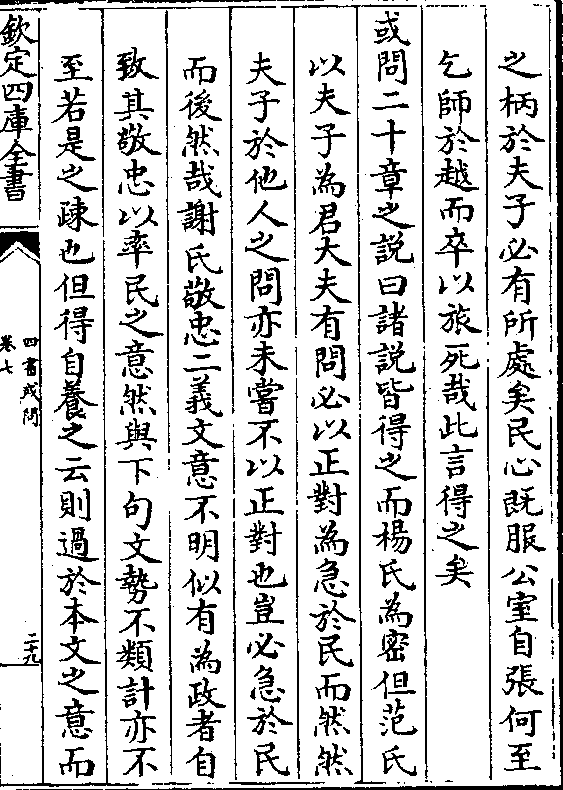 之柄於夫子必有所處矣民心既服公室自張何至
乞師於越而卒以旅死哉此言得之矣
或問二十章之説曰諸説皆得之而楊氏為密但范氏
以夫子為君大夫有問必以正對為急於民而然然
夫子於他人之問亦未嘗不以正對也豈必急於民
而後然哉謝氏敬忠二義文意不明似有為政者自
致其敬忠以率民之意然與下句文勢不類計亦不
至若是之疎也但得自養之云則過於本文之意而
欽定四庫全書
四書或問
卷七
二十九